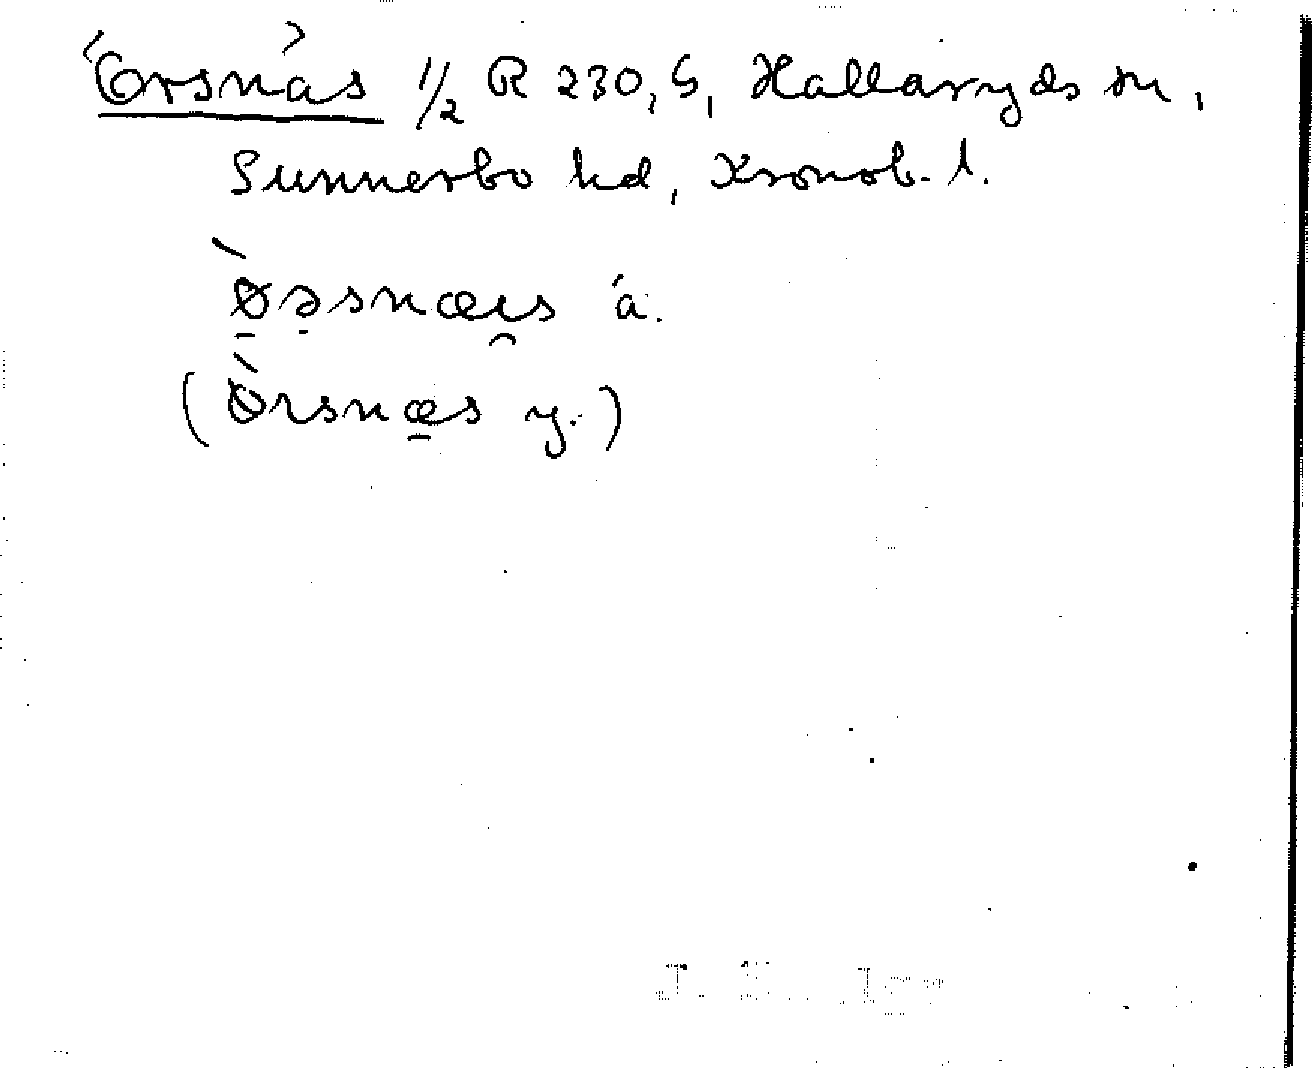 Örsnäs 1/2 R 230, G, Hallaryds sn,
Sunnerbo hd, Kronob. l.
ø̀əsnæıs ä.
(Ørsnæs y.)